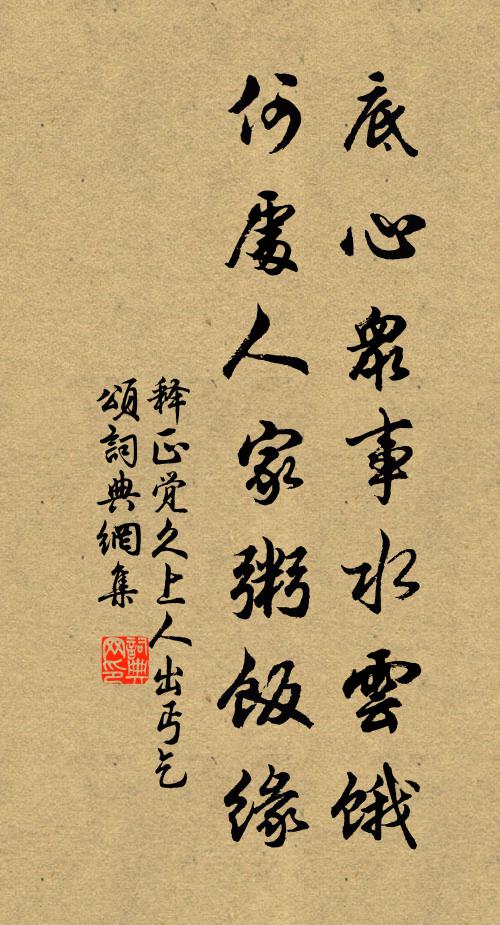 底心眾事水雲餓
何處人家粥飯緣
释正觉久上人出丐乞
頌詞典網集
詞典
网印